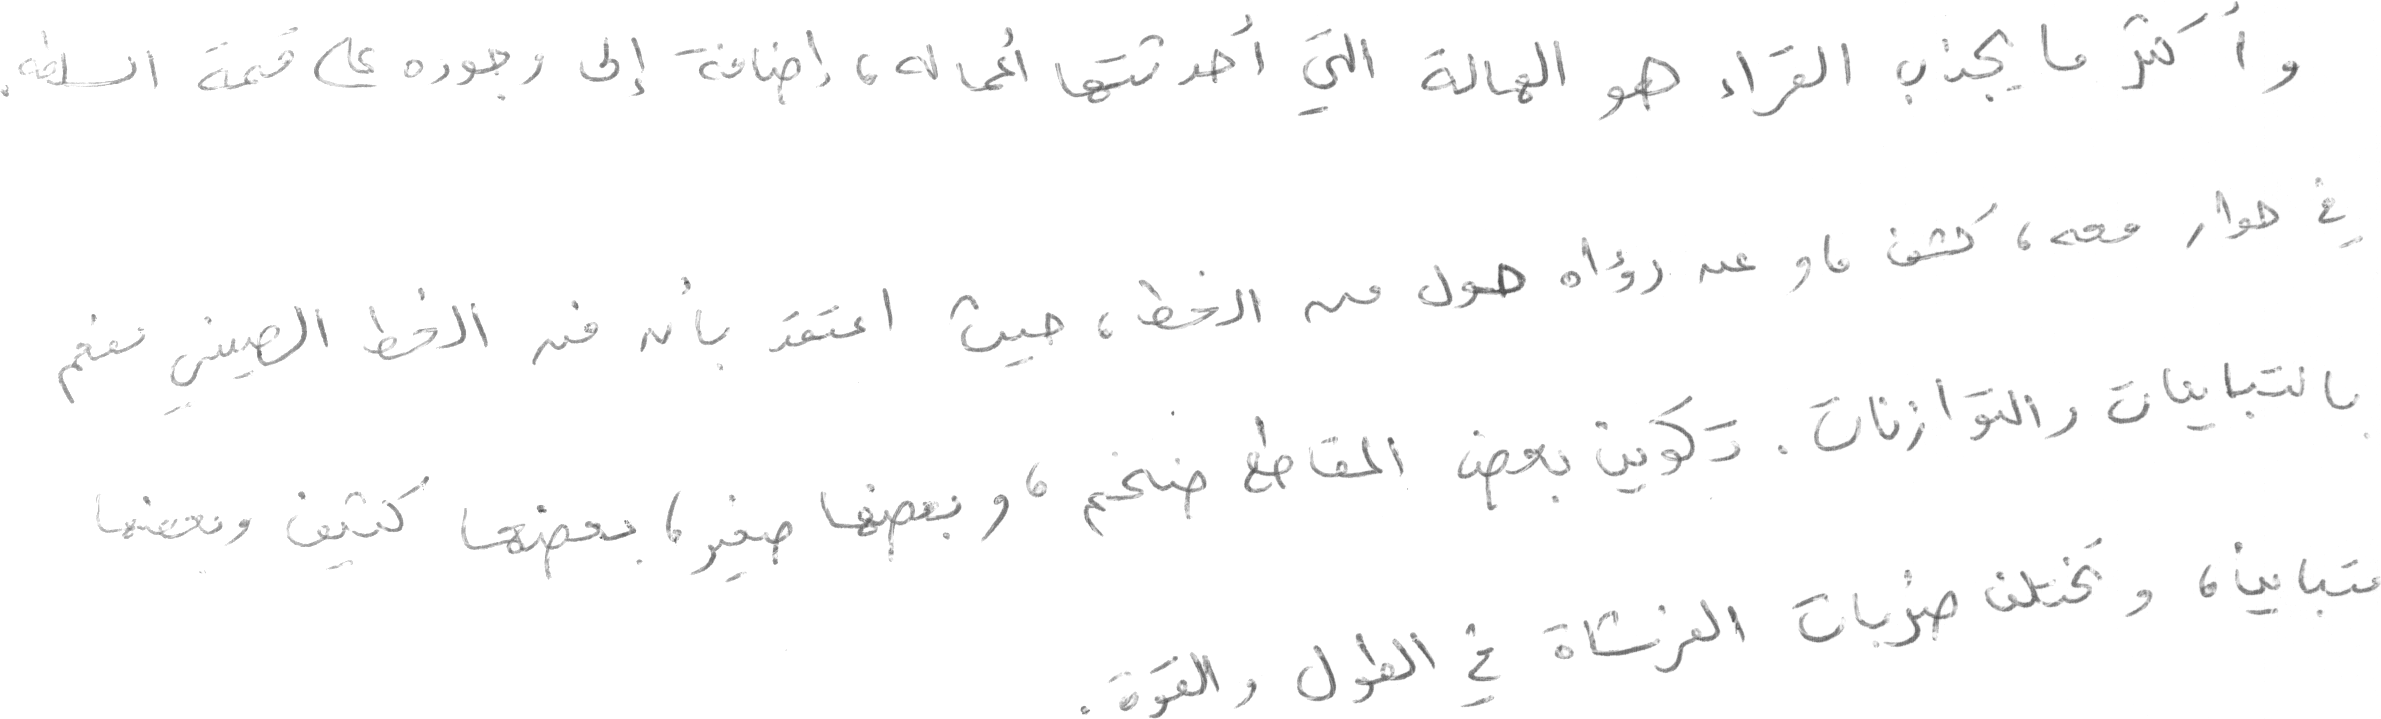 وأكثر ما يجذب القراء هو الهالة التي أحدثتها أعماله، إضافة إلى وجوده على قمة السلطة.
في حوار معه، كشف ماو عن رؤاه حول فن الخط، حيث اعتقد بأن فن الخط الصيني مفعم
بالتباينات والتوازنات. تكوين بعض المقاطع ضخم، وبعضها صغير، بعضها كثيف وبعضها
متباين، وتختلف ضربات الفرشاة في الطول والقوة.